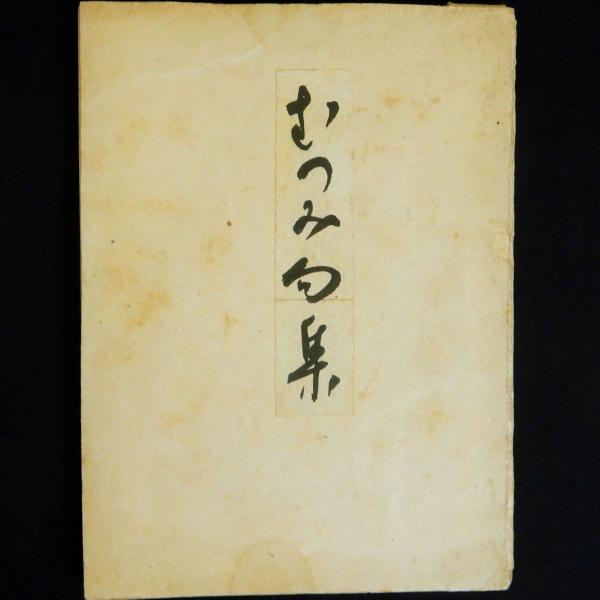 むつみ句集